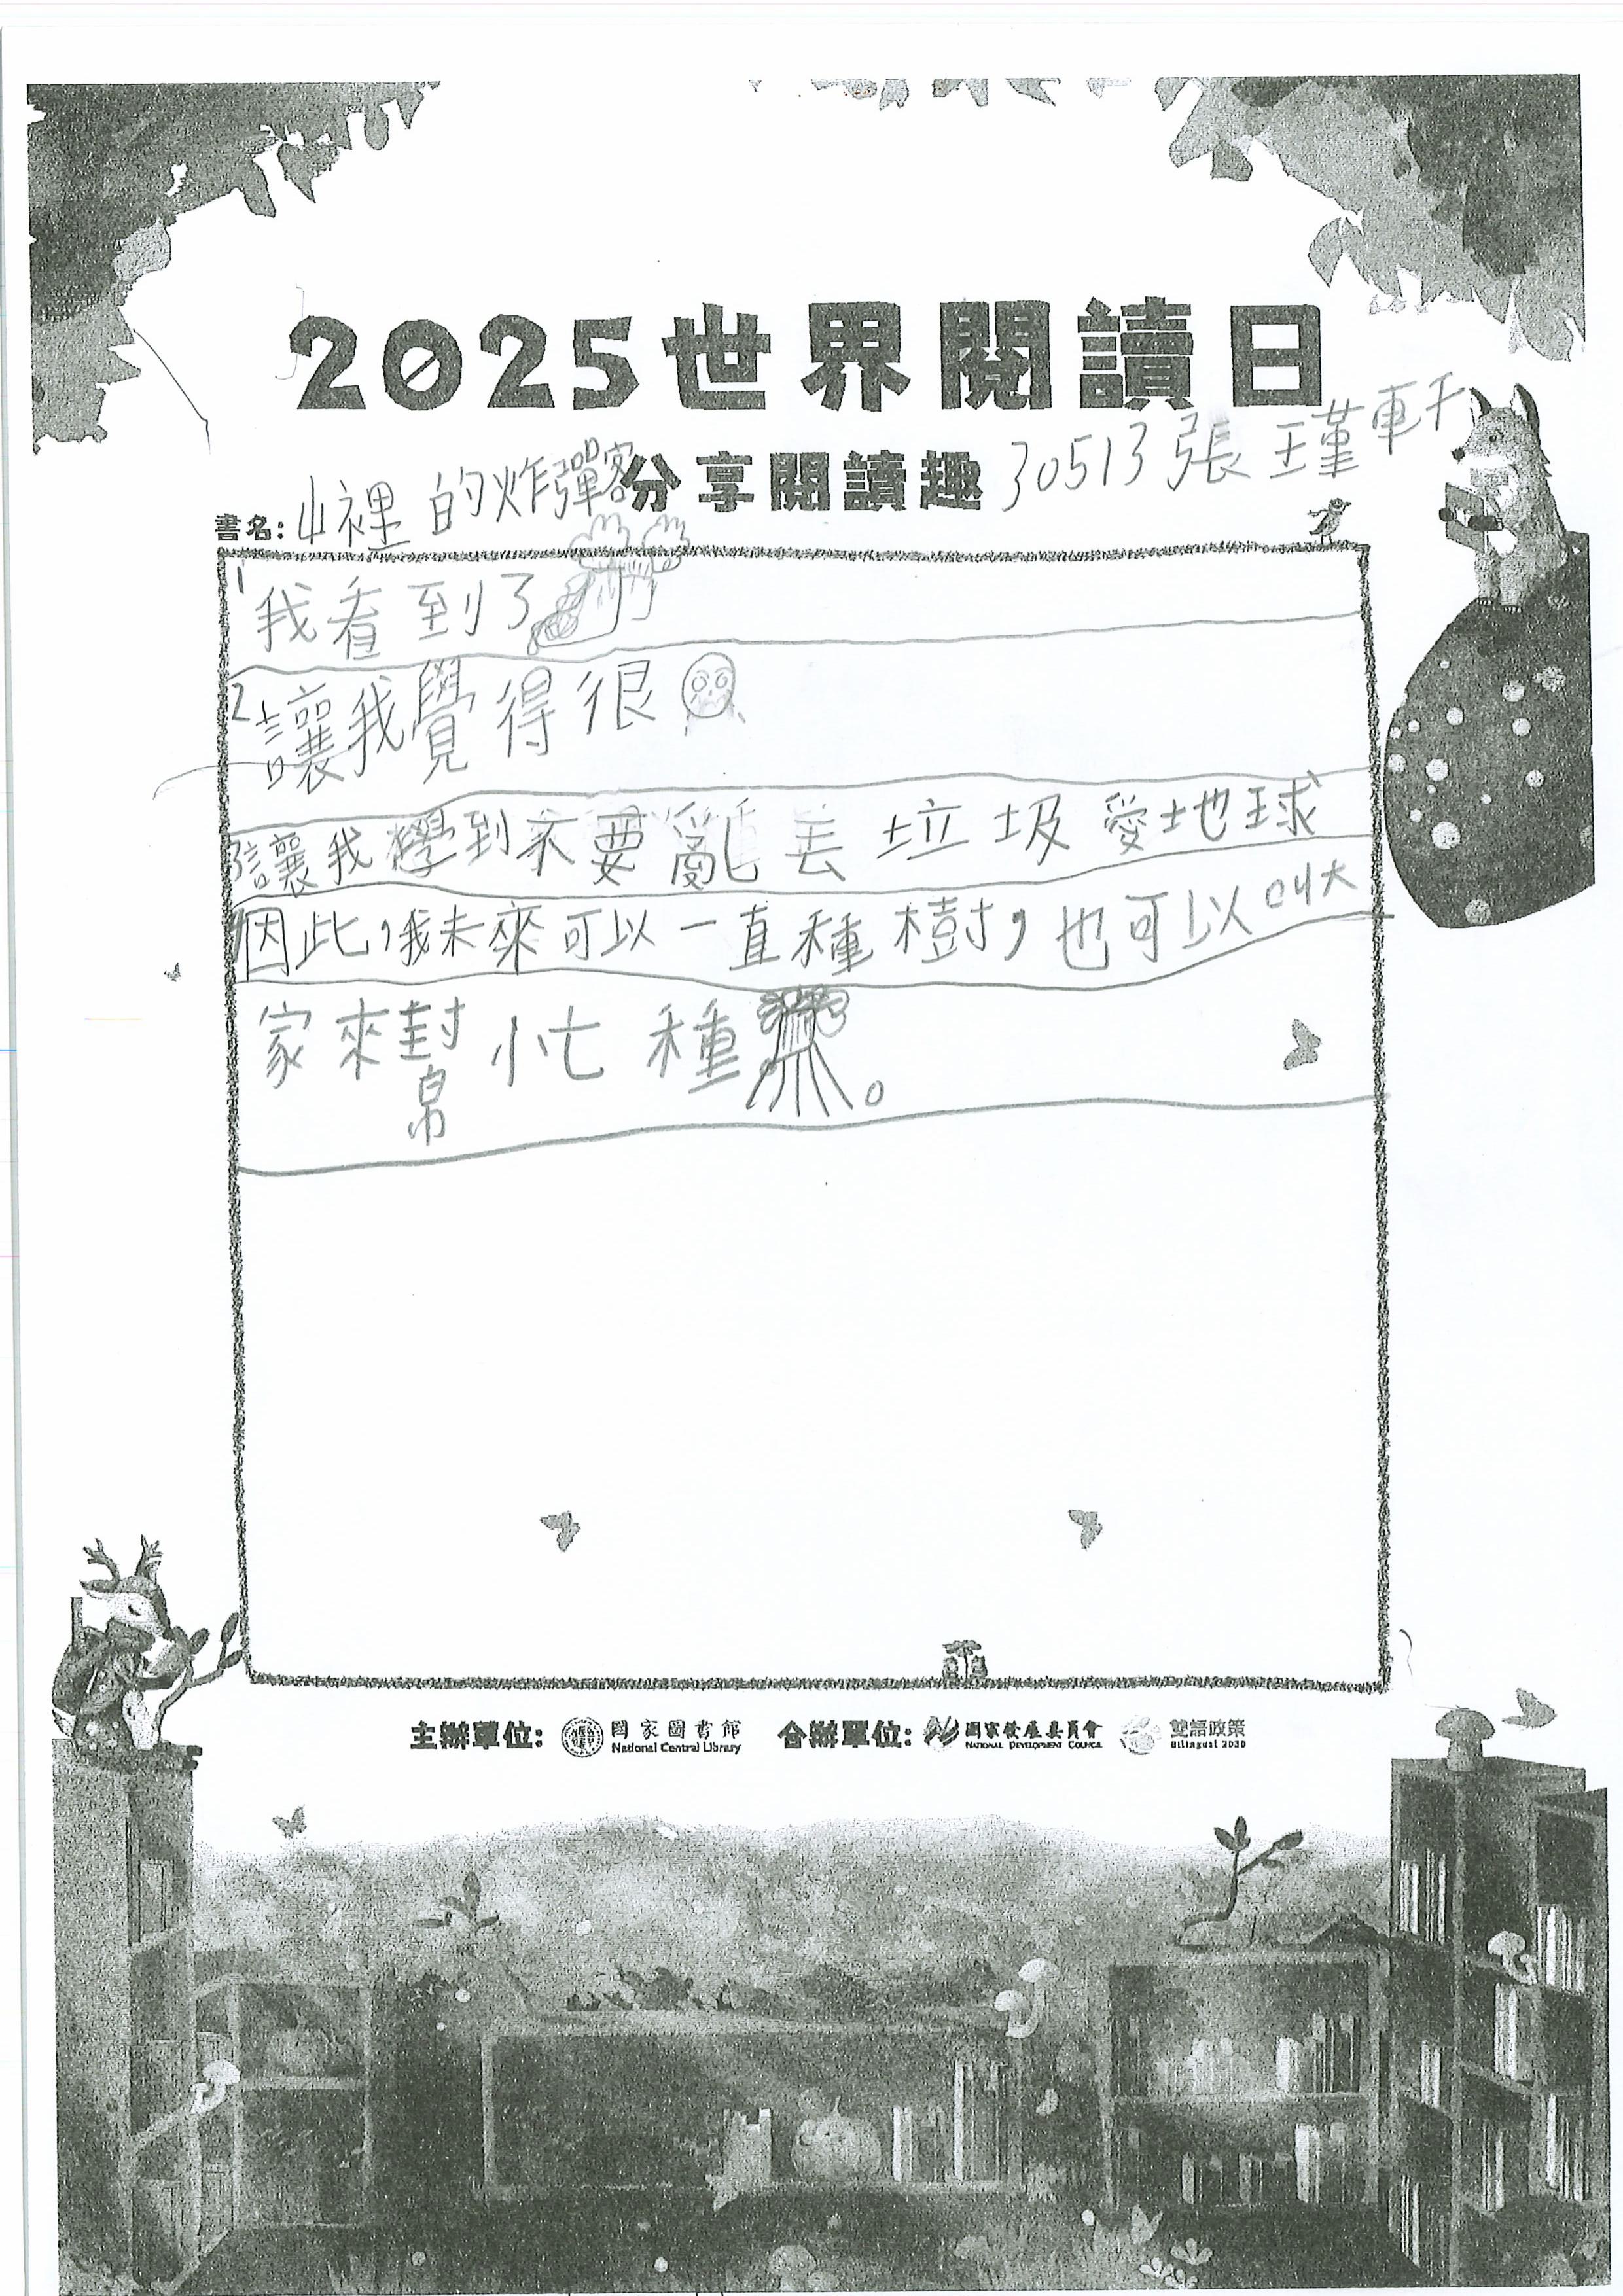 2025世界閱讀日
分享閱讀趣
30513張瑾軒
書名:山裡的炸彈客
1 我看到了
2 讓我覺得很
3 讓我學到不要亂丟垃圾愛地球
因此,我未來可以一直種樹,也可以叫大
家來幫忙種。
主辦單位: 國家圖書館 National Central Library 合辦單位: 國家發展委員會 NATIONAL DEVELOPMENT COUNCIL 雙語政策 Bilingual 2030